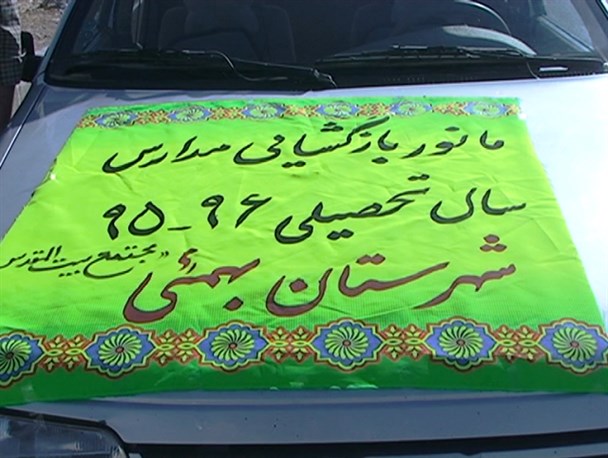 مانور بازگشایی مدارس
سال تحصیلی ۹۶-۹۵
شهرستان بهمئی
"مجتمع بیت المقدس